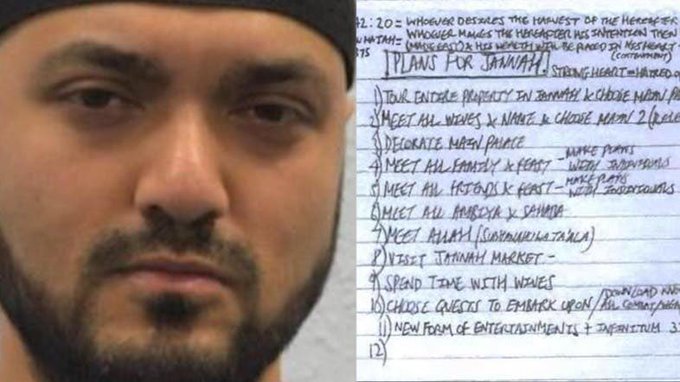 42:20 = WHOEVER DESIRES THE HARVEST OF THE HEREAFTER
WHOEVER MAKES THE HEREAFTER HIS INTENTION THEN
(MADE EASY) & HIS WEALTH WILL BE PLACED IN HIS HEART
(CONTENTMENT)
PLANS FOR JANNAH. STRONG HEART = HATRED O
1) TOUR ENTIRE PROPERTY IN JANNAH & CHOOSE MAIN PA
2) MEET ALL WIVES & NAME & CHOOSE MAIN 2
3) DECORATE MAIN PALACE
4) MEET ALL FAMILY & FEAST - MAKE PLANS WITH INDIVIDUALS
5) MEET ALL FRIENDS & FEAST - MAKE PLANS WITH INDIVIDUALS
6) MEET ALL AMBIYA & SAHABA
7) MEET ALLAH
8) VISIT JANNAH MARKET -
9) SPEND TIME WITH WIVES
10) CHOOSE QUESTS TO EMBARK UPON / DOWNLOAD
11) NEW FORM OF ENTERTAINMENTS + INFINITUM
12)